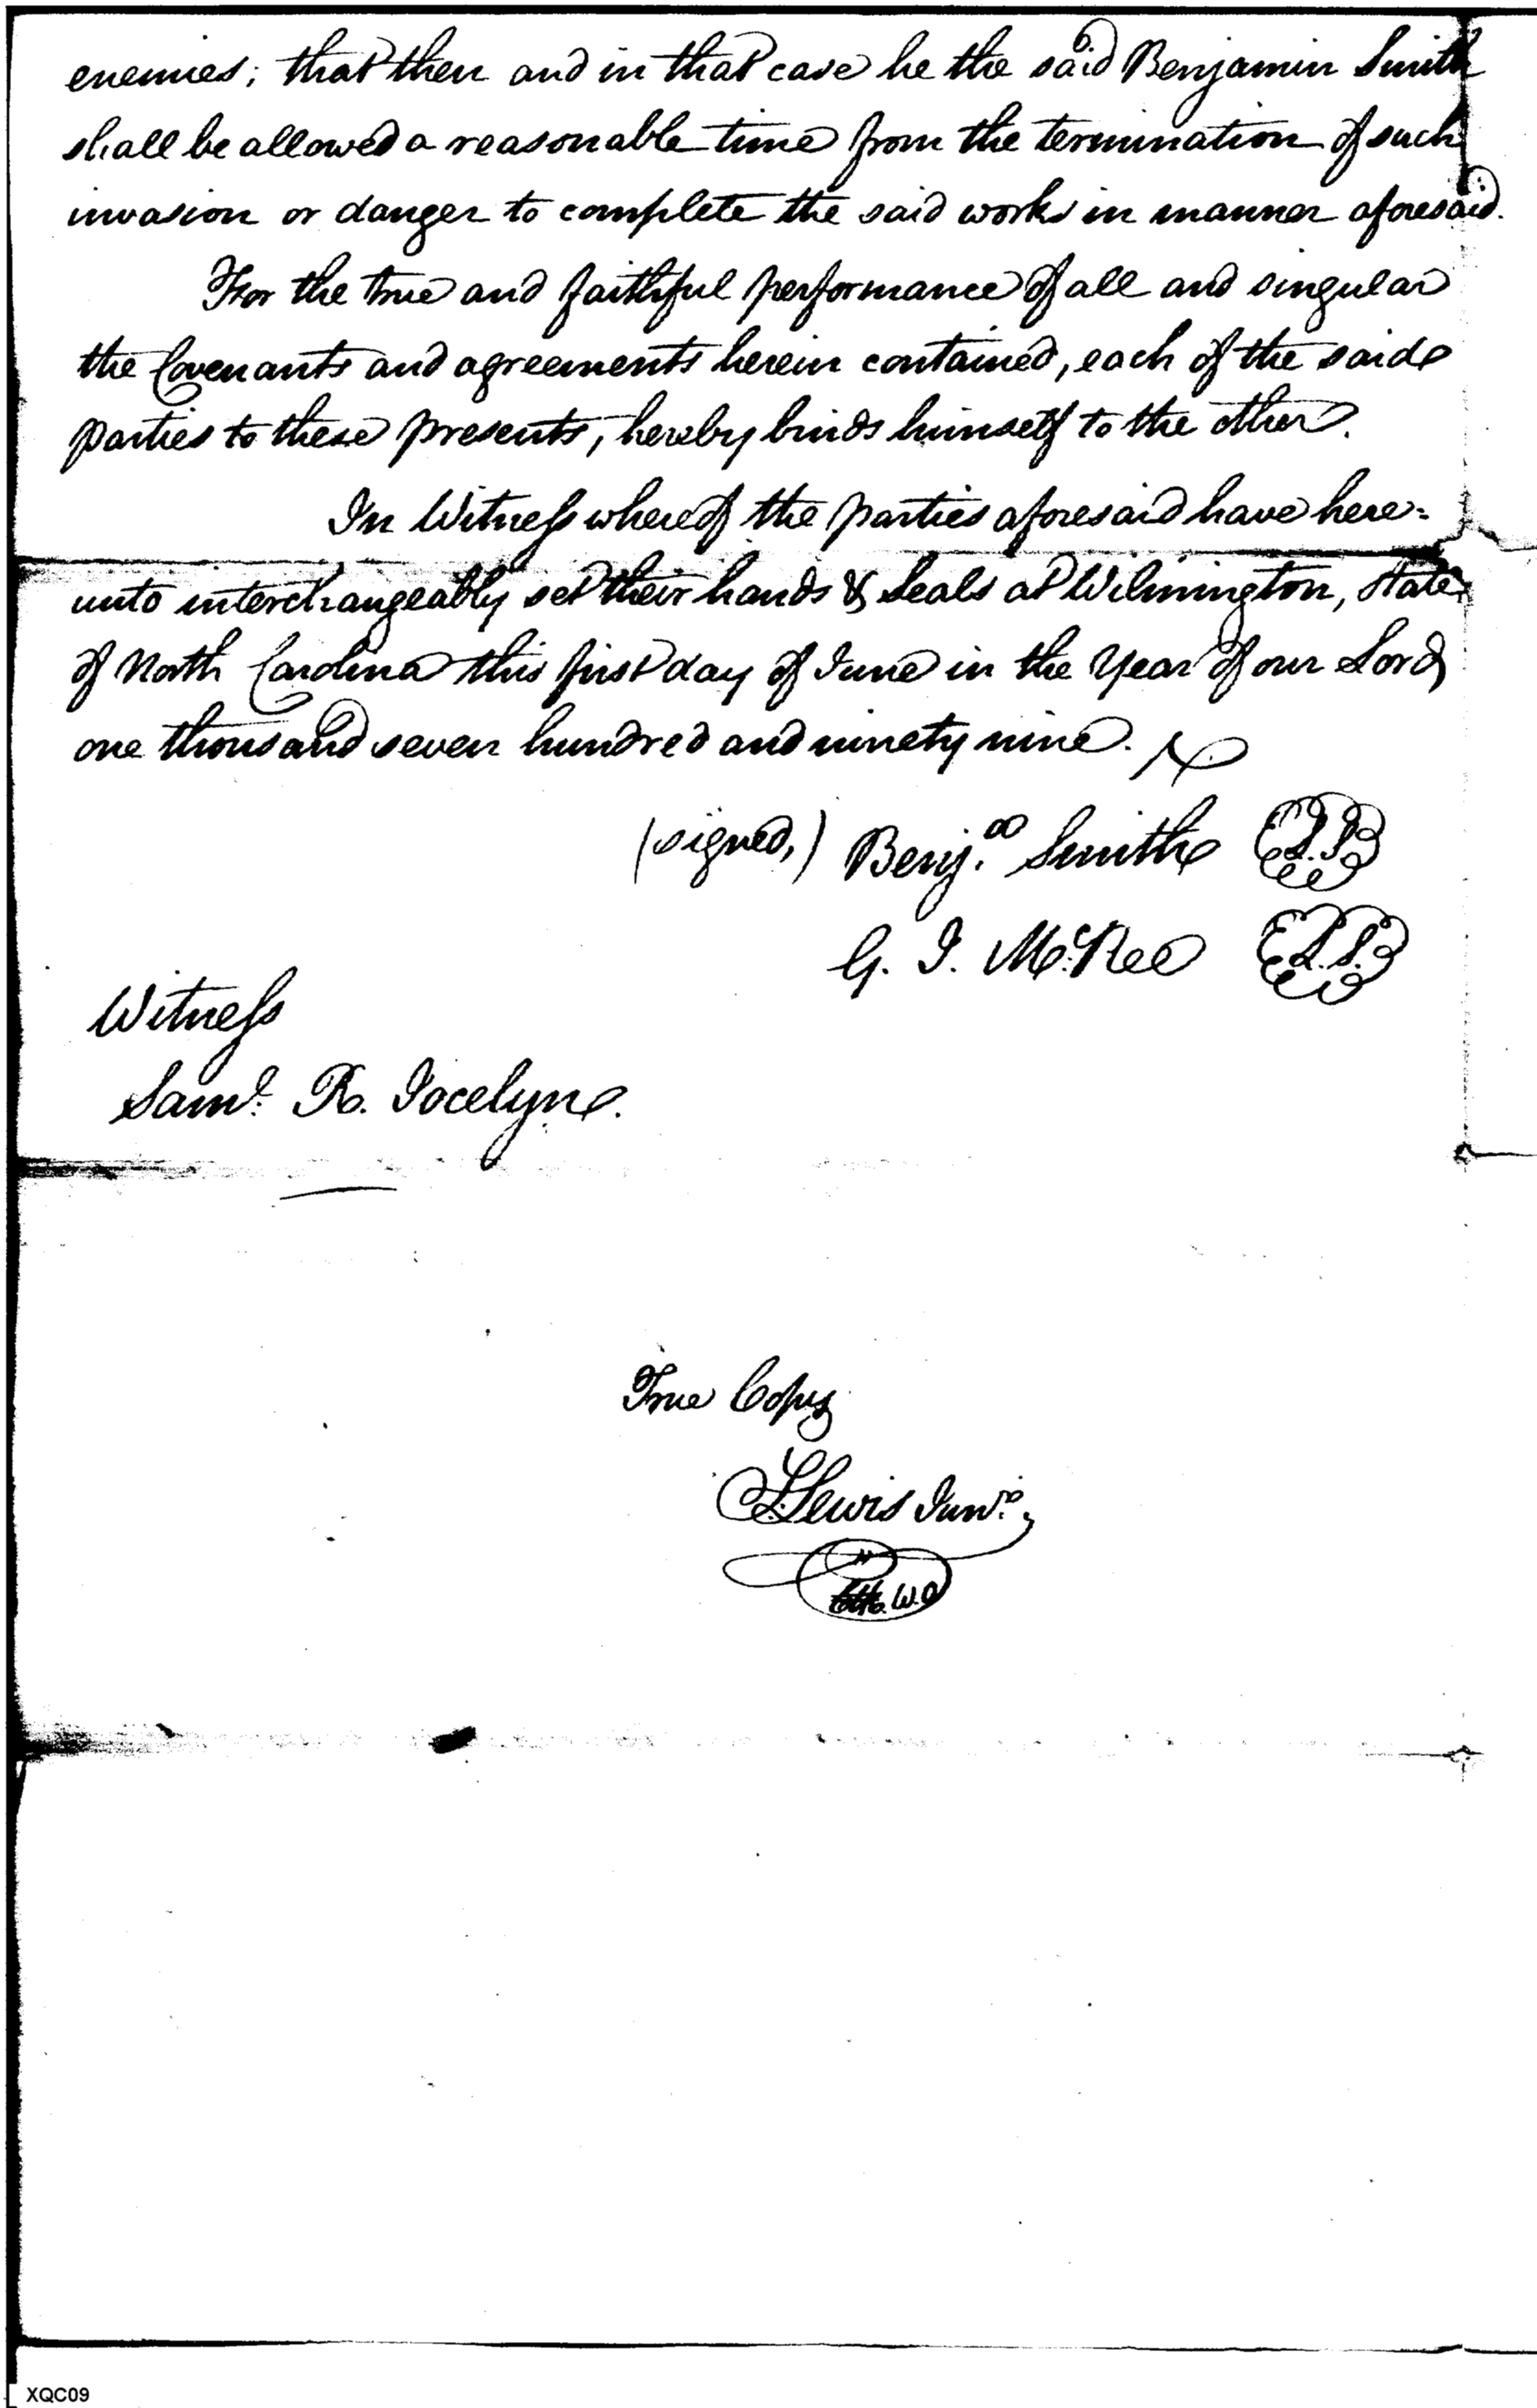 enemies; that then and in that case he the said Benjamin Smith
shall be allowed a reasonable time from the termination of such
invasion or danger to complete the said works in manner aforesaid.
For the true and faithful performance of all and singular
the Covenants and agreements herein contained, each of the said
parties to these presents, hereby binds himself to the other.
In Witness whereof the parties aforesaid have here=
unto interchangeably set their hands & Seals at Wilmington, State
of North Carolina this first day of June in the Year of our Lord
one thousand seven hundred and ninety nine.
(signed,) Benj.n Smith L.S.
G. J. McRee L.S.
Witness
Saml. R. Jocelyn.
True Copy
Lewis Junr.
W.O
XQC09